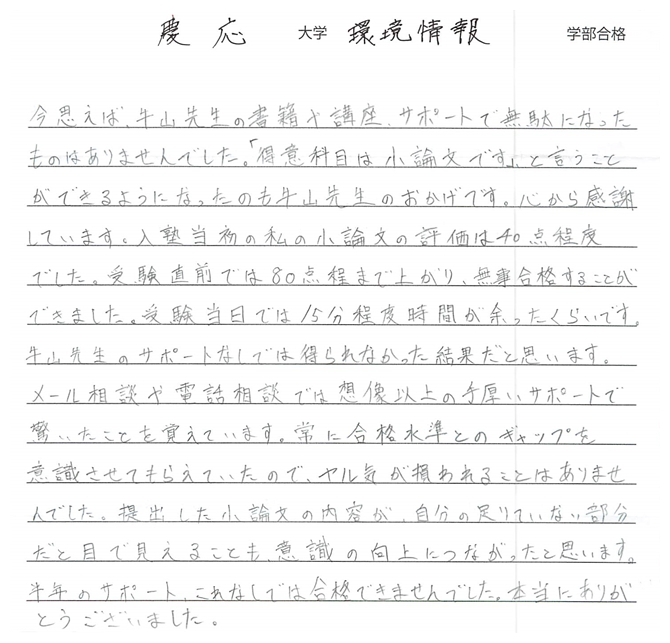 慶応 大学 環境情報 学部合格
今思えば、牛山先生の書籍や講座、サポートで無駄になった
ものはありませんでした。「得意科目は小論文です」と言うこと
ができるようになったのも牛山先生のおかげです。心から感謝
しています。入塾当初の私の小論文の評価は40点程度
でした。受験直前では80点程まで上がり、無事合格することが
できました。受験当日では15分程度時間が余ったくらいです。
牛山先生のサポートなしでは得られなかった結果だと思います。
メール相談や電話相談では想像以上の手厚いサポートで
驚いたことを覚えています。常に合格水準とのギャップを
意識させてもらえていたので、ヤル気が損われることはありませ
んでした。提出した小論文の内容が、自分の足りていない部分
だと目で見えることも、意識の向上につながったと思います。
半年のサポート、これなしでは合格できませんでした。本当にありが
とうございました。